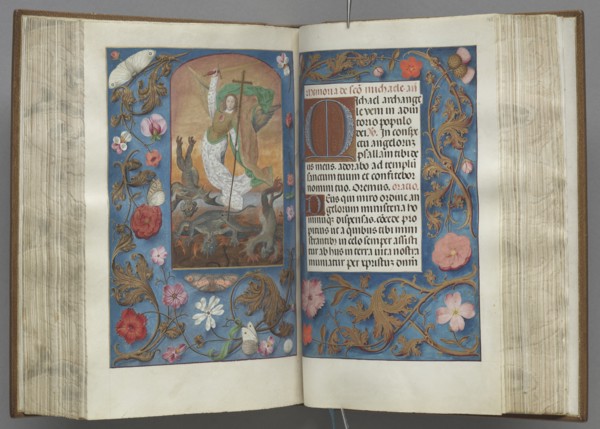 Memoria de sco michaele arc
Michael archange
le veni in adiu
torio populo
dei. V. In conspe
ctu angelorum
psallam tibi de
us meus. adorabo ad templum
sanctum tuum et confitebor
nomini tuo. Oremus. oratio.
Deus qui miro ordine an
gelorum ministeria ho
minumque dispensas. concede pro
pitius ut a quibus tibi mini
strantibus in celo semper assisti
tur ab his in terra vita nostra
muniatur per xpristum dnm